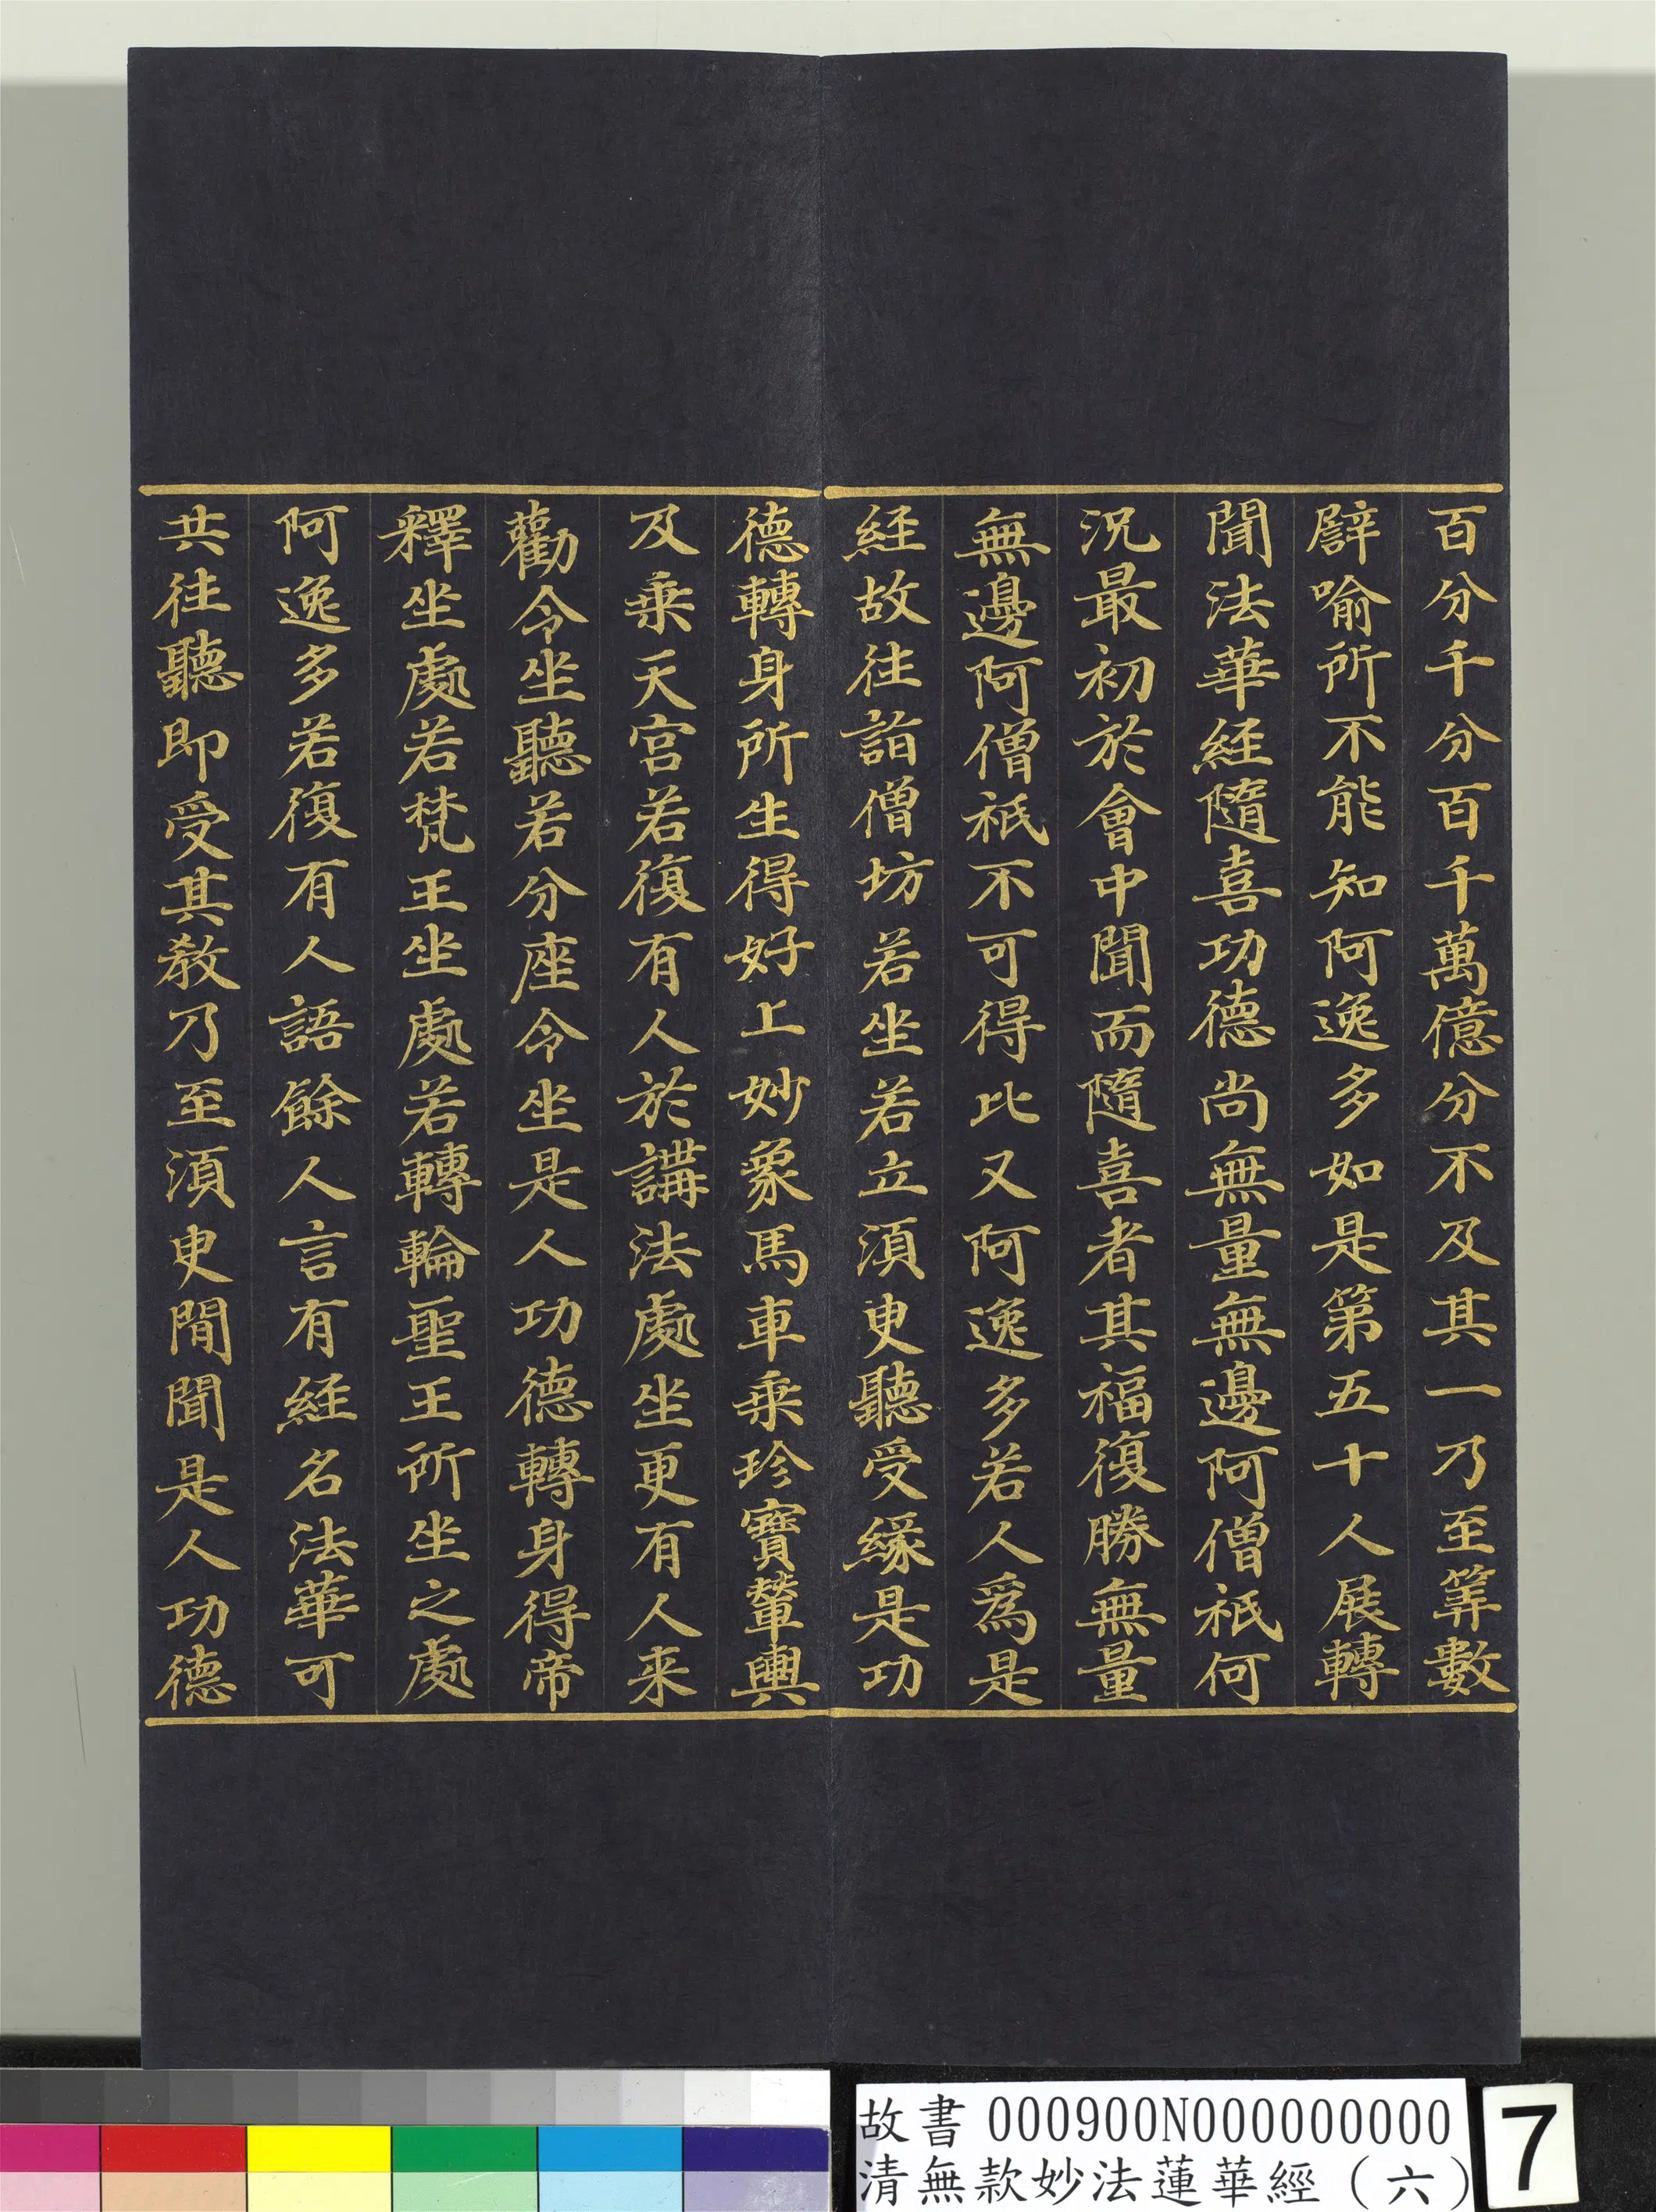 百分千分百千萬億分不及其一乃至筭數
譬喻所不能知阿逸多如是第五十人展轉
聞法華經隨喜功德尚無量無邊阿僧祇何
況最初於會中聞而隨喜者其福復勝無量
無邊阿僧祇不可得比又阿逸多若人爲是
經故往詣僧坊若坐若立須臾聽受緣是功
德轉身所生得好上妙象馬車乘珍寶輦輿
及乘天宮若復有人於講法處坐更有人來
勸令坐聽若分座令坐是人功德轉身得帝
釋坐處若梵王坐處若轉輪聖王所坐之處
阿逸多若復有人語餘人言有經名法華可
共往聽即受其教乃至須臾閒聞是人功德
故書 000900N000000000
清無款妙法蓮華經（六）
7